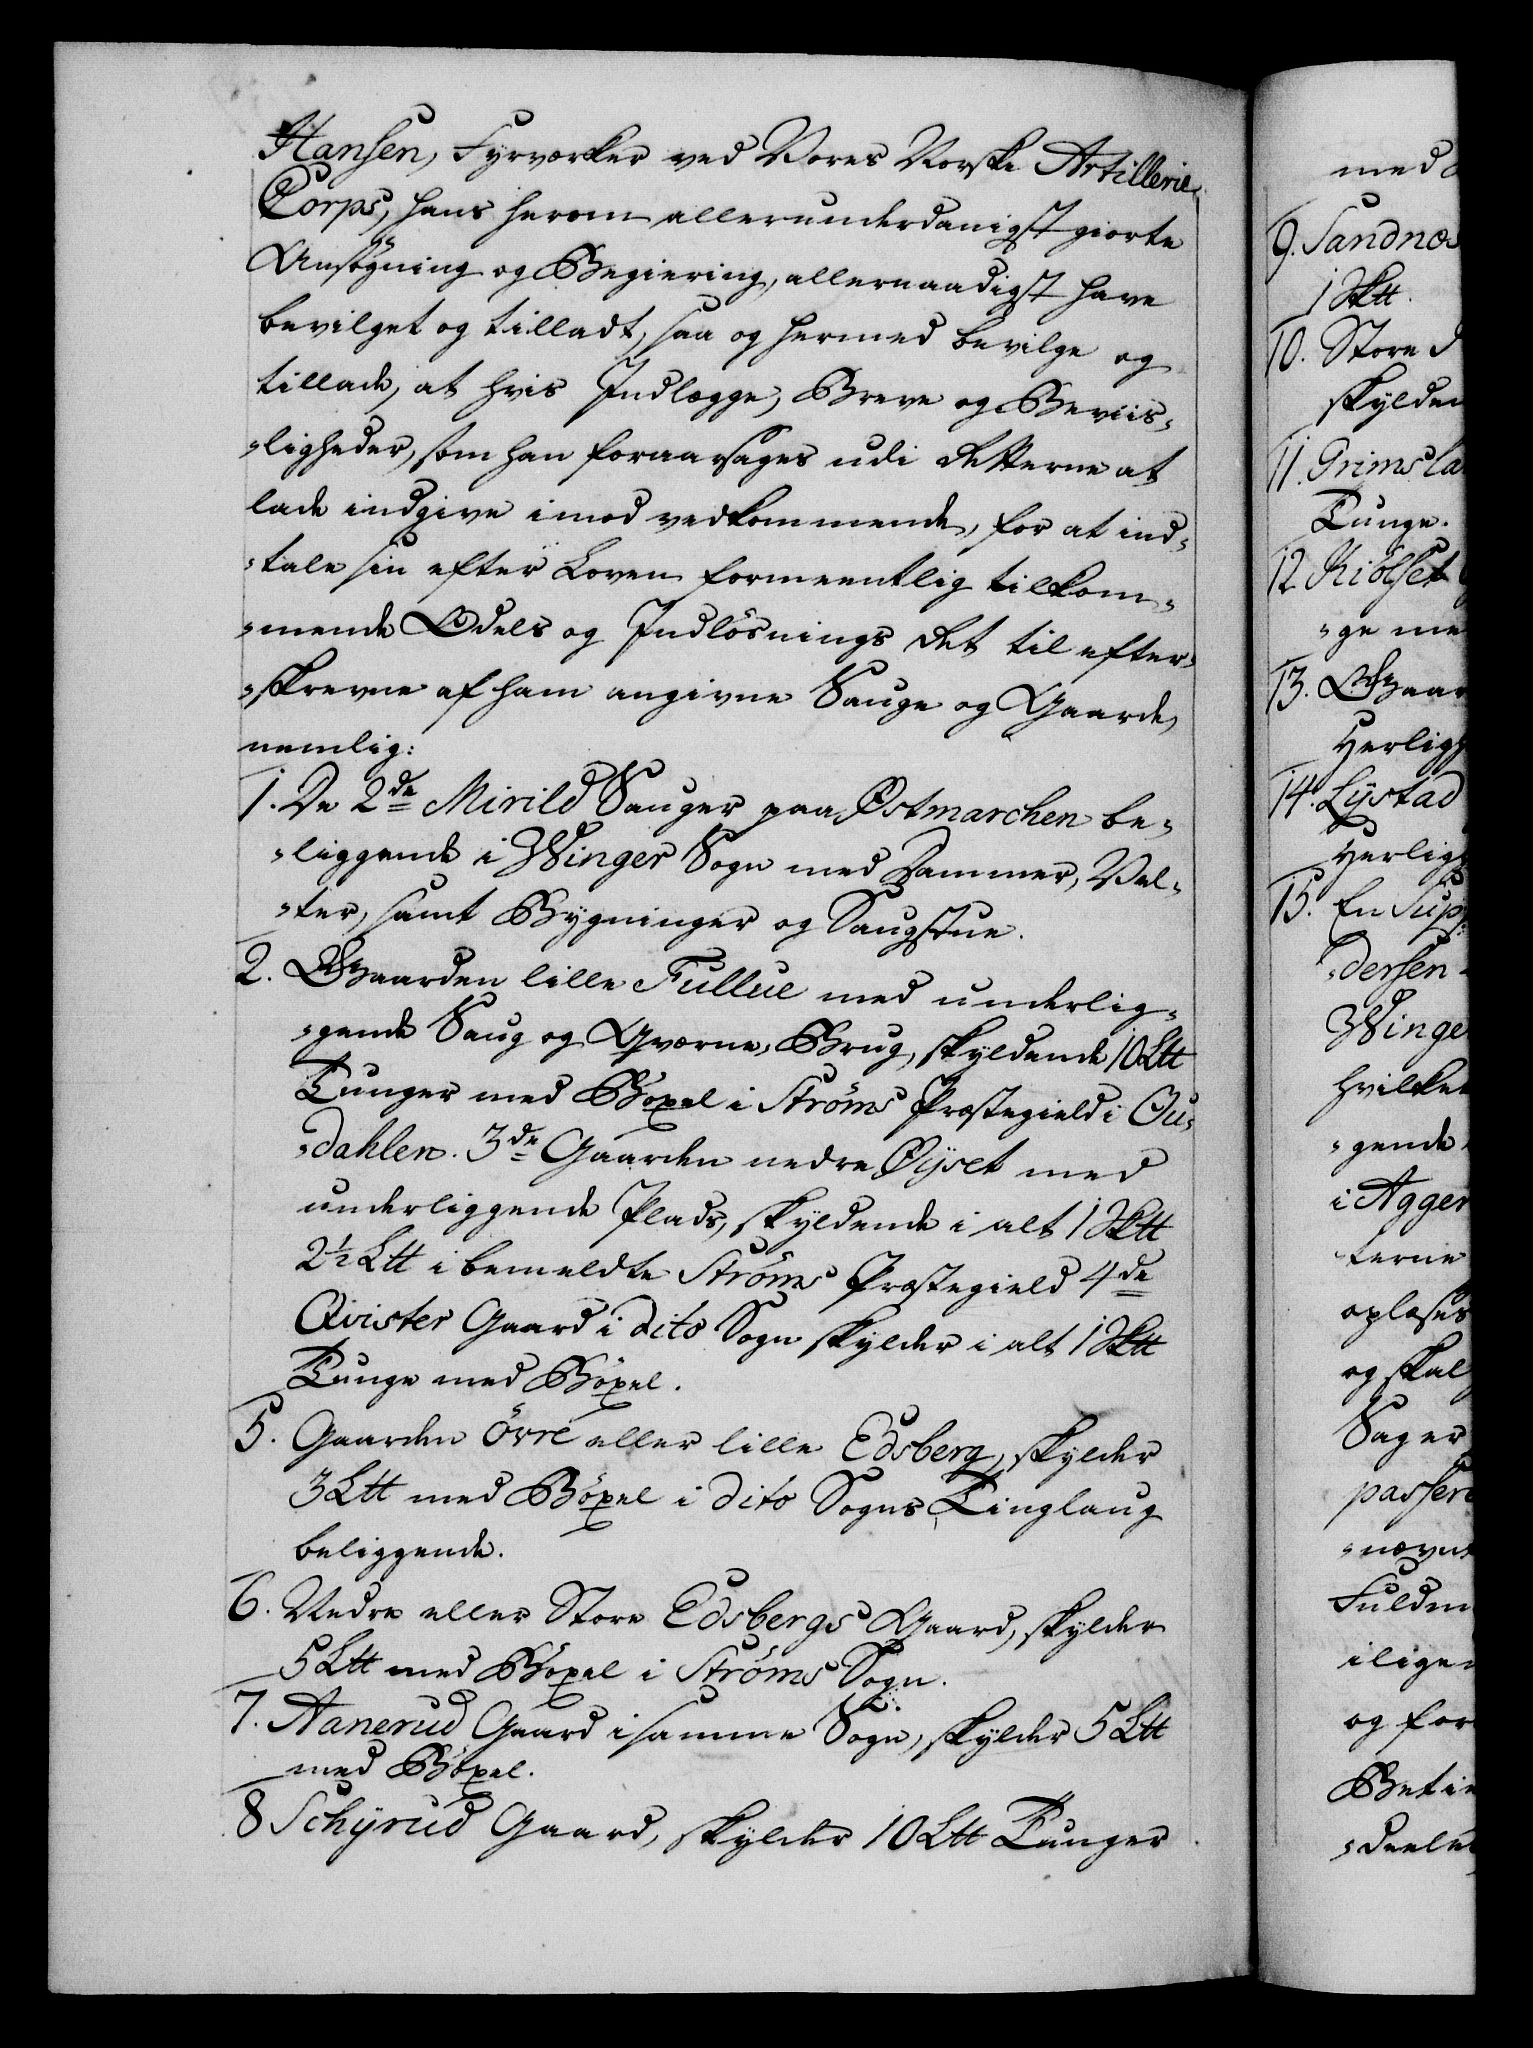 Hansen, Fyrværker ved Vores Norske Artillerie
Corps, hans herom allerunderdanigst giorte
Ansøgning og Begiering, allernaadigst have
bevilget og tilladt, saa og hermed bevilge og
tillade, at hvis Indlægge, Breve og Beviis-
-ligheder, som han foraarsages udi Retterne at
lade indgive imod vedkommende, for at ind-
-tale sin efter Loven formeentlig tilkom-
-mende Odels og Indlösnings Ret til efter-
-skrevne af ham angivne Sauge og Gaarde,
nemlig:
1. De 2de Mirild Sauger paa Østmarchen be-
-liggende i Winger Sogn med Dammer, Vel-
-ter, samt Bygninger og Saugstue.
2. Gaarden lille Fullue med underlig-
-gende Saug og Qværne-Brug, skyldende 10 Ltt
Tunger med Böxel i Strøms Præstegield i Ou-
-dahlen. 3de Gaarden nedre Øijset med
underliggende Plads, skyldende i alt 1 Sktt
2½ Ltt i bemeldte Strøms Præstegield 4de
Qvister Gaard i dito Sogn skylder i alt 1 Sktt
Tunge med Böxel.
5. Gaarden Övre eller lille Edsberg, skylder
3 Ltt med Böxel i dito Sogns Tinglaug
beliggende.
6. Nedre eller Store Edsbergs Gaard, skylder
5 Ltt med Böxel i Strøms Sogn.
7. Aanerud Gaard i samme Sogn, skylder 5 Ltt
med Böxel.
8 Schÿrud Gaard, skylder 10 Ltt Tunger
med
9. Sandnæs
1 Sktt.
10. Store
skylden
11. Grimsla
Tunge.
12 Kiölset
-ge me
13. Gaar
Herligh
14. Lystad
Herligh
15. En Sup
-dersen
Winge
hvilke
-gende
i Agger
-terne
oplæses
og skal
Sager
passer
-nævn
Fuldm
ilige
og for
Betie
-deele